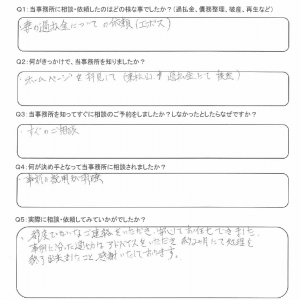 Q1: 当事務所に相談・依頼したのはどの様な事でしたか?(過払金、債務整理、破産、再生など)
・妻の過払金についての依頼(エポス)
Q2: 何がきっかけで、当事務所を知りましたか?
・ホームページを拝見して(過払金にて検索)
Q3: 当事務所を知ってすぐに相談のご予約をしましたか?しなかったとしたらなぜですか?
・すぐのご相談
Q4: 何が決め手となって当事務所に相談されましたか?
・事前に費用が
Q5: 実際に相談・依頼してみていかがでしたか?
・都度ていねいなご連絡をいただき、安心してお任せできました。
事例に沿った適切なアドバイスをいただき 約2ヵ月にて処理を
終了出来ましたこと、感謝いたしております。